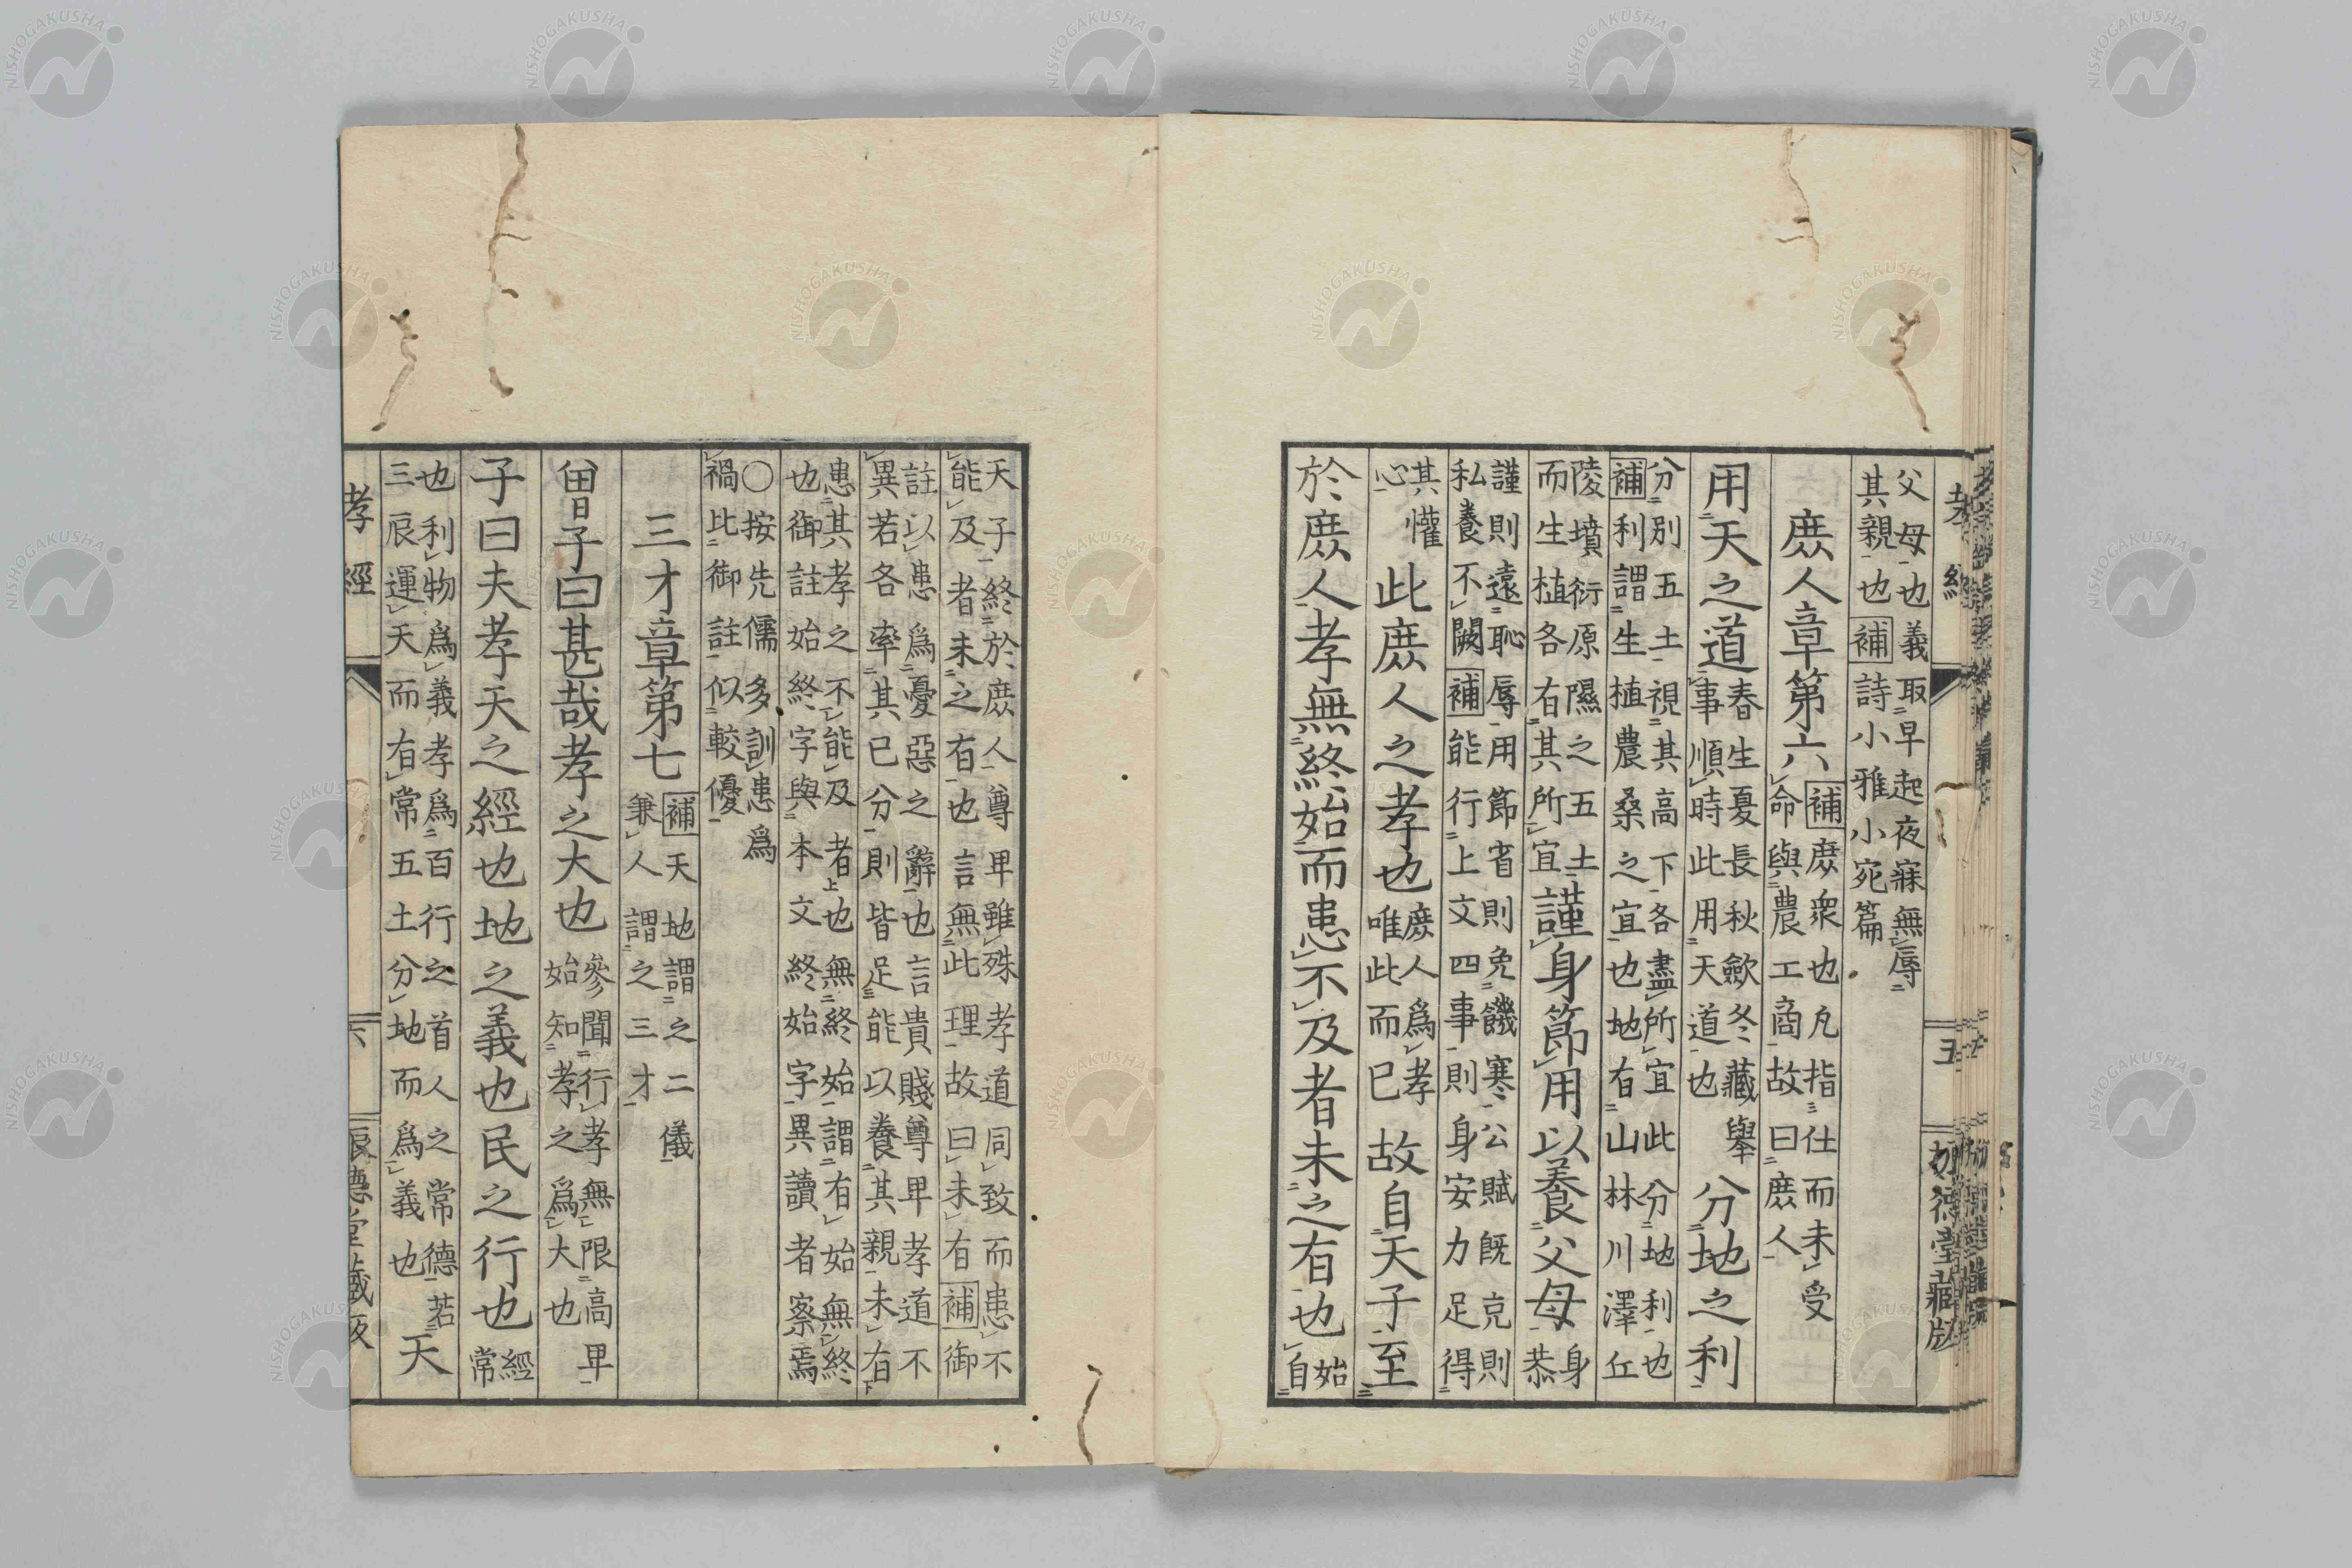 父母也義取早起夜寐無辱
其親也補詩小雅小宛篇
庶人章第六補庶衆也凡指仕而未受
命與農工商故曰庶人
用天之道春生夏長秋斂冬藏舉
事順時此用天道也分地之利
分別五土視其高下各盡所宜此分地利也
補利謂生植農桑之宜也地有山林川澤丘
陵墳衍原隰之五土
而生植各有其所宜謹身節用以養父母身
恭
謹則遠恥辱用節省則免饑寒公賦既充則
私養不闕補能行上文四事則身安力足得
其懽
心此庶人之孝也庶人爲孝
唯此而已故自天子至
於庶人孝無終始而患不及者未之有也始
自
天子終於庶人尊卑雖殊孝道同致而患不
能及者未之有也言無此理故曰未有補御
註以患爲憂惡之辭也言貴賤尊卑孝道不
異若各率其已分則皆足能以養其親未有
患其孝之不能及者也無終始謂有始無終
也御註始終字與本文終始字異讀者察焉
〇按先儒多訓患爲
禍比御註似較優
三才章第七補天地謂之二儀
兼人謂之三才
曾子曰甚哉孝之大也參聞行孝無限高卑
始知孝之爲大也
子曰夫孝天之經也地之義也民之行也經
常
也利物爲義孝爲百行之首人之常德若
三辰運天而有常五土分地而爲義也天
孝經
六
懷德堂藏版
孝經
五
懷德堂藏版
NISHOGAKUSHA